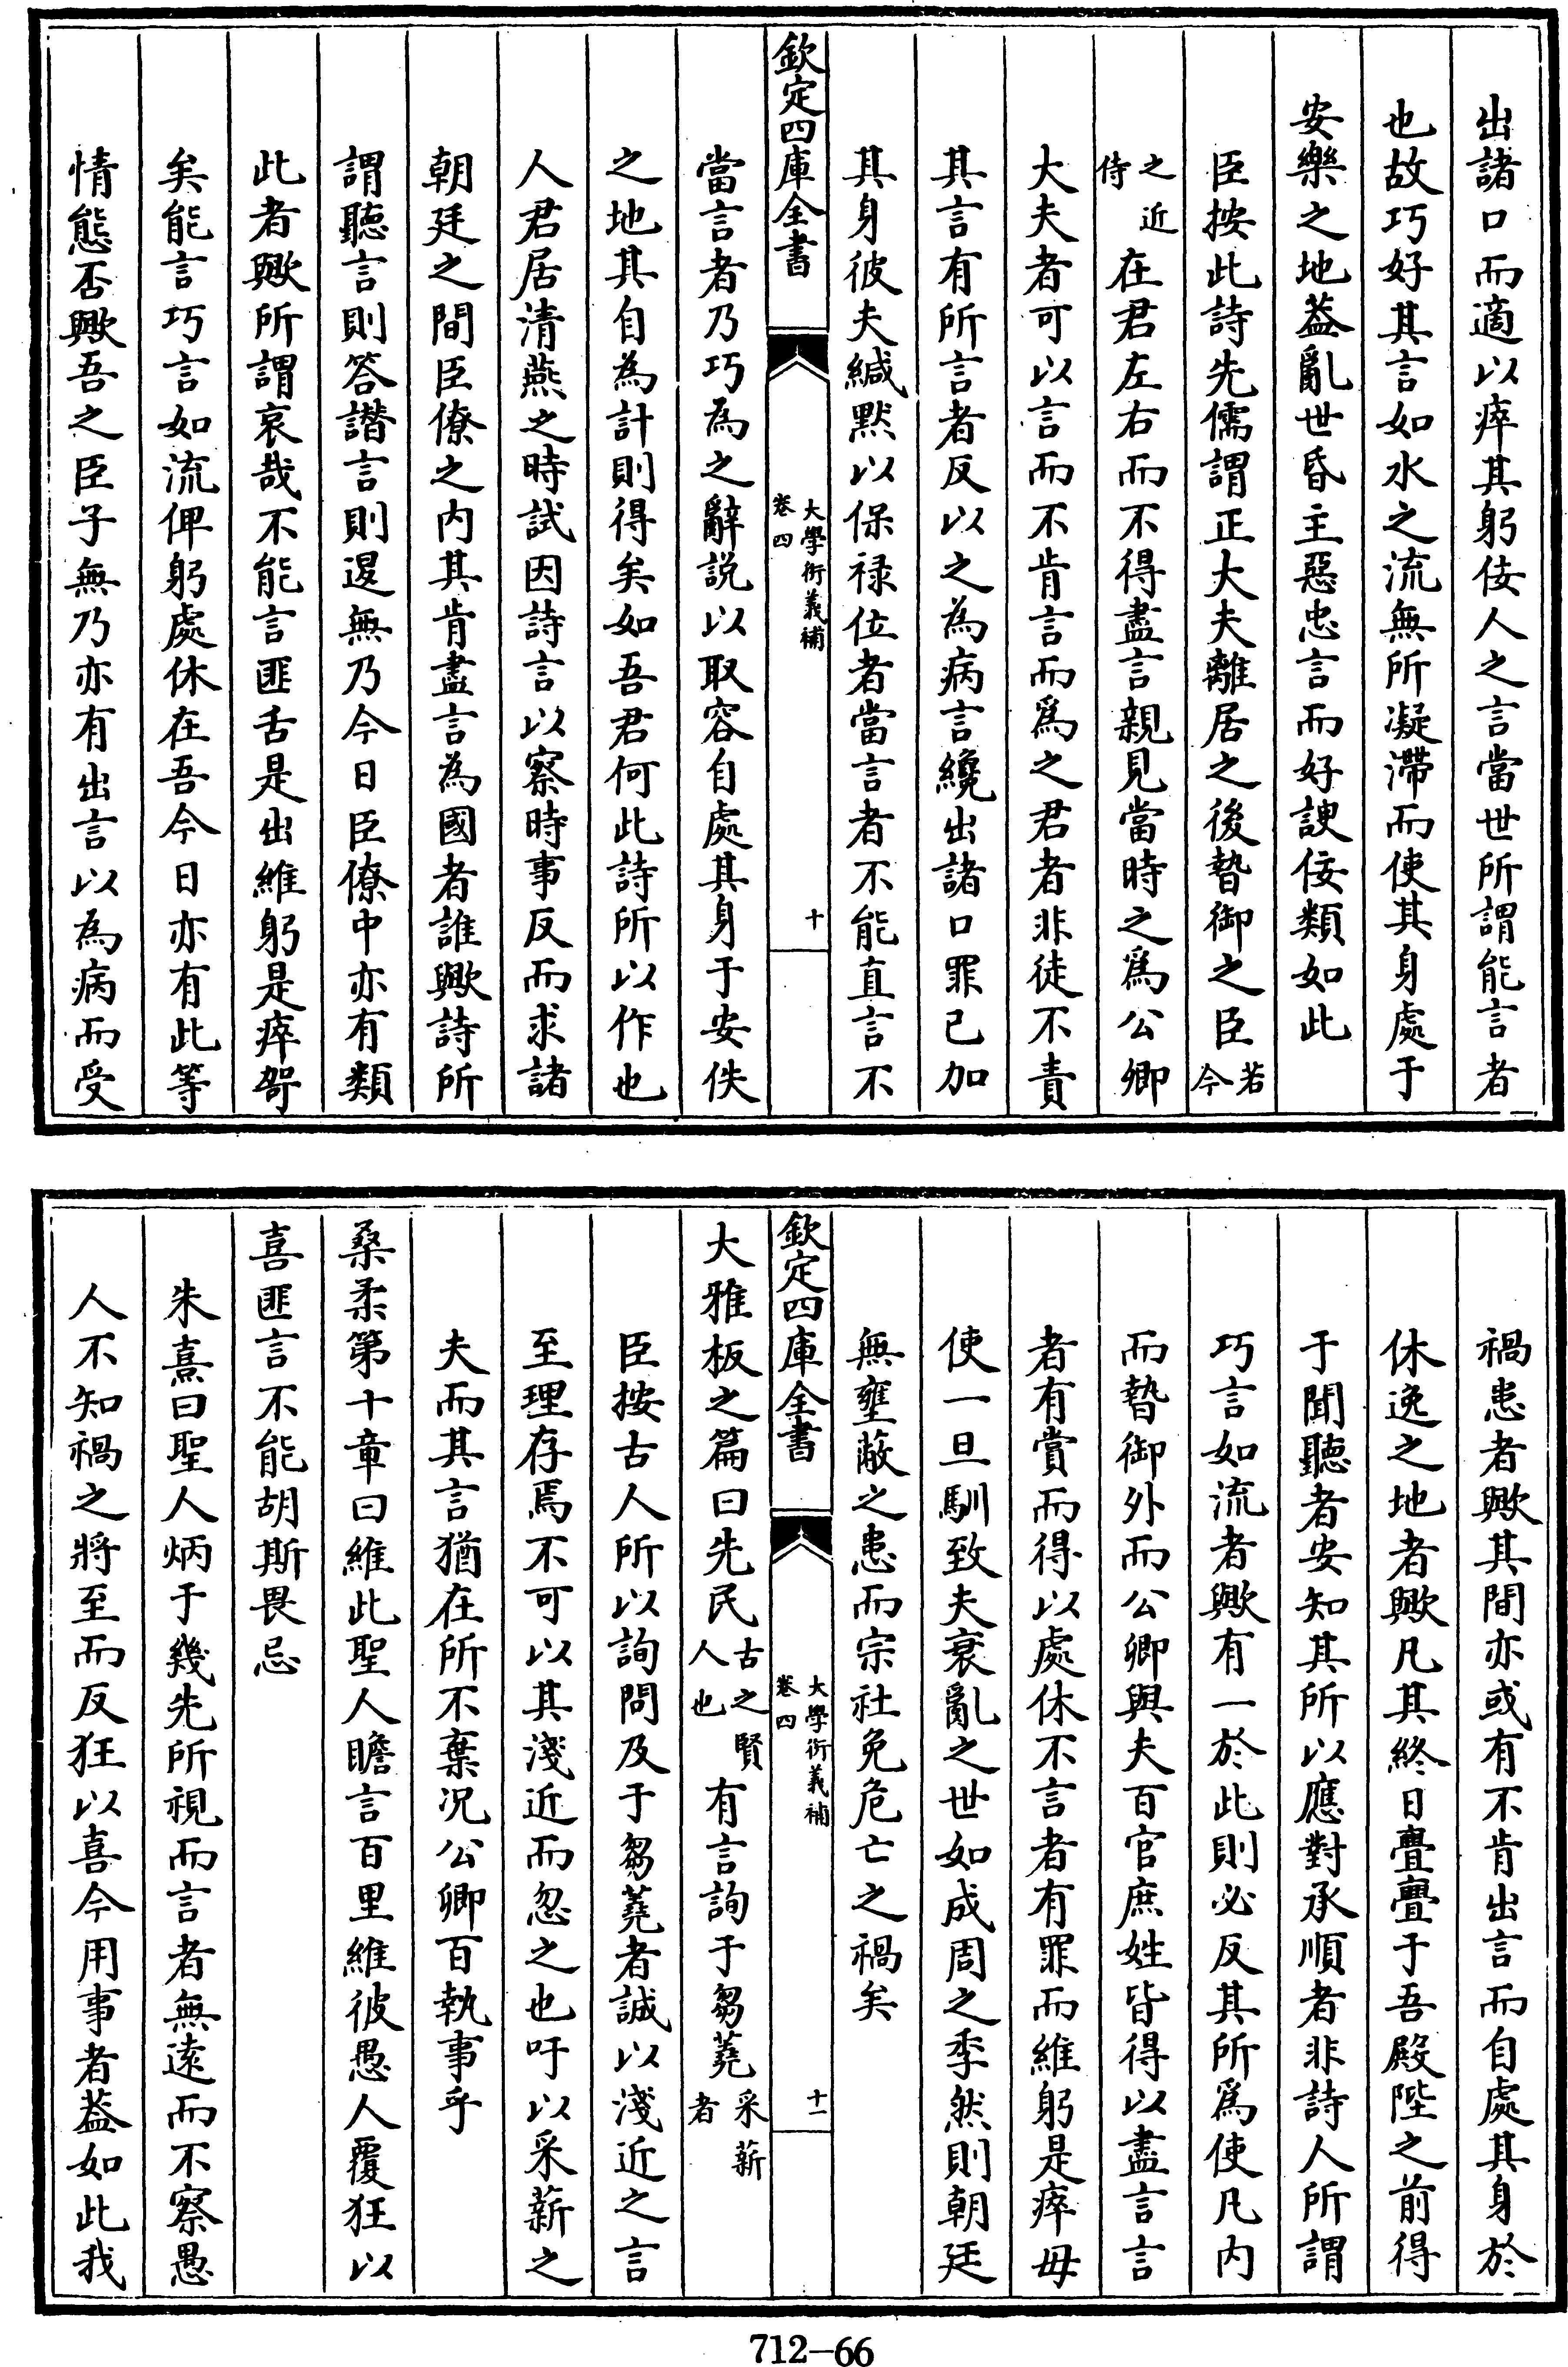 出諸口而適以瘁其躬佞人之言當世所謂能言者
也故巧好其言如水之流無所凝滯而使其身處于
安樂之地葢亂世昏主惡忠言而好諛佞類如此
臣按此詩先儒謂正大夫離居之後暬御之臣若今
之近侍在君左右而不得盡言親見當時之爲公卿
大夫者可以言而不肯言而爲之君者非徒不責
其言有所言者反以之為病言纔出諸口罪已加
其身彼夫緘默以保禄位者當言者不能直言不
欽定四庫全書
大學衍義補
卷四
十
當言者乃巧為之辭説以取容自處其身于安佚
之地其自為計則得矣如吾君何此詩所以作也
人君居清燕之時試因詩言以察時事反而求諸
朝廷之間臣僚之内其肯盡言為國者誰歟詩所
謂聽言則答譖言則退無乃今日臣僚中亦有類
此者歟所謂哀哉不能言匪舌是出維躬是瘁哿
矣能言巧言如流俾躬處休在吾今日亦有此等
情態否歟吾之臣子無乃亦有出言以為病而受
禍患者歟其間亦或有不肯出言而自處其身於
休逸之地者歟凡其終日亹亹于吾殿陛之前得
于聞聽者安知其所以應對承順者非詩人所謂
巧言如流者歟有一於此則必反其所爲使凡内
而暬御外而公卿與夫百官庶姓皆得以盡言言
者有賞而得以處休不言者有罪而維躬是瘁毋
使一旦馴致夫衰亂之世如成周之季然則朝廷
無壅蔽之患而宗社免危亡之禍矣
欽定四庫全書
大學衍義補
卷四
十一
大雅板之篇曰先民古之賢人也有言詢于芻蕘采薪者
臣按古人所以詢問及于芻蕘者誠以淺近之言
至理存焉不可以其淺近而忽之也吁以采薪之
夫而其言猶在所不棄况公卿百執事乎
桑柔第十章曰維此聖人瞻言百里維彼愚人覆狂以
喜匪言不能胡斯畏忌
朱熹曰聖人炳于幾先所視而言者無遠而不察愚
人不知禍之將至而反狂以喜今用事者葢如此我
712-66